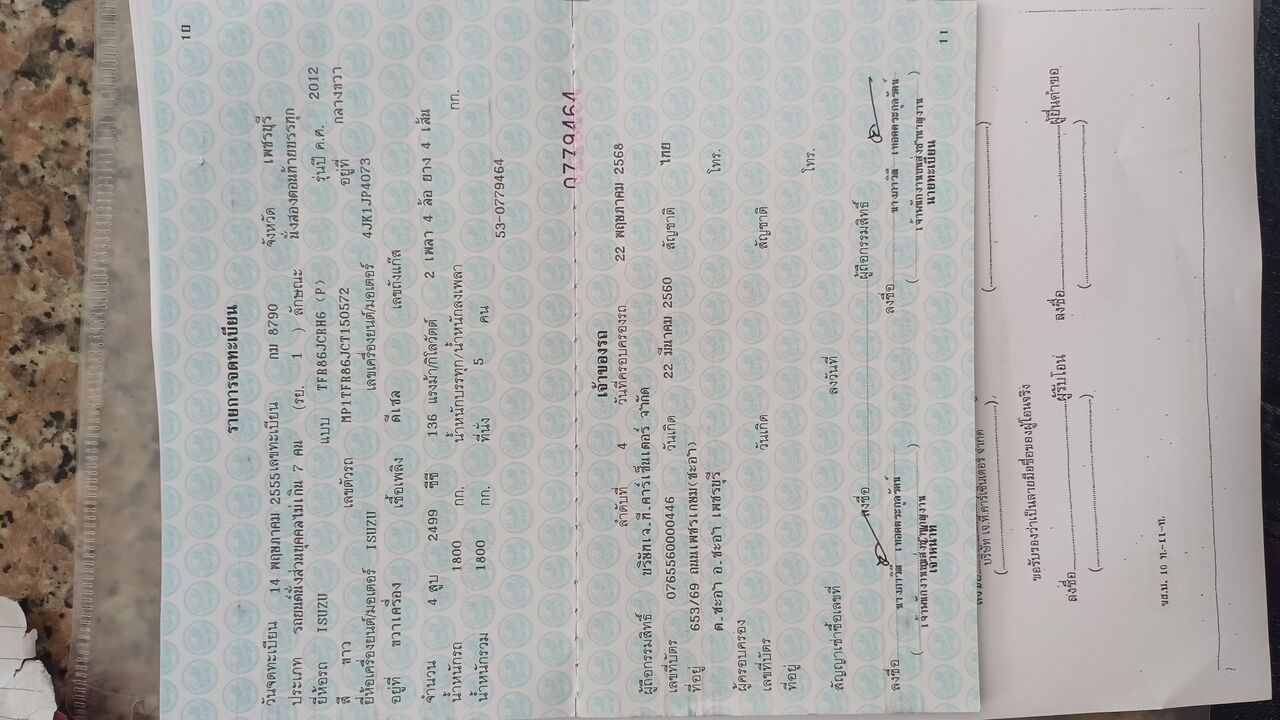 10
รายการจดทะเบียน
วันจดทะเบียน 14 พฤษภาคม 2555 เลขทะเบียน ฌม 8790 จังหวัด เพชรบุรี
ประเภท รถยนต์นั่งส่วนบุคคลไม่เกิน 7 คน (รย. 1 ) ลักษณะ นั่งสองตอนท้ายบรรทุก
ยี่ห้อรถ ISUZU แบบ TFR86JCRH6 (P) รุ่นปี ค.ศ. 2012
สี ขาว เลขตัวรถ MP1TFR86JCT150572 อยู่ที่ กลางขวา
ยี่ห้อเครื่องยนต์/มอเตอร์ ISUZU เลขเครื่องยนต์/มอเตอร์ 4JK1JP4073
อยู่ที่ ขวาเครื่อง เชื้อเพลิง ดีเซล เลขถังแก๊ส
จำนวน 4 สูบ 2499 ซีซี 136 แรงม้า/กิโลวัตต์ 2 เพลา 4 ล้อ ยาง 4 เส้น
น้ำหนักรถ 1800 กก. น้ำหนักบรรทุก/น้ำหนักลงเพลา กก.
น้ำหนักรวม 1800 กก. ที่นั่ง 5 คน
53-0779464
0779464
เจ้าของรถ
ลำดับที่ 4 วันที่ครอบครองรถ 22 พฤษภาคม 2568
ผู้ถือกรรมสิทธิ์ บริษัทเจ.ที.คาร์เซ็นเตอร์ จำกัด
เลขที่บัตร 0765560000446 วันเกิด 22 มีนาคม 2560 สัญชาติ ไทย
ที่อยู่ 653/69 ถนนเพชรเกษม(ชะอำ)
ต.ชะอำ อ.ชะอำ เพชรบุรี โทร.
ผู้ครอบครอง
เลขที่บัตร วันเกิด สัญชาติ
ที่อยู่ โทร.
สัญญาเช่าซื้อเลขที่ ลงวันที่
ลงชื่อ ผู้ถือกรรมสิทธิ์
ลงชื่อ ลงชื่อ
เจ้าพนักงานขนส่งชำนาญงาน เจ้าพนักงานขนส่งชำนาญงาน
เจ้าหน้าที่ นายทะเบียน
11
บริษัท เจ.ที.คาร์เซ็นเตอร์ จำกัด
(..........) (..........)
ขอรับรองว่าเป็นลายมือชื่อของผู้โอนจริง
ลงชื่อ..........ผู้รับโอน ลงชื่อ..........ผู้ยื่นคำขอ
(..........) (..........)